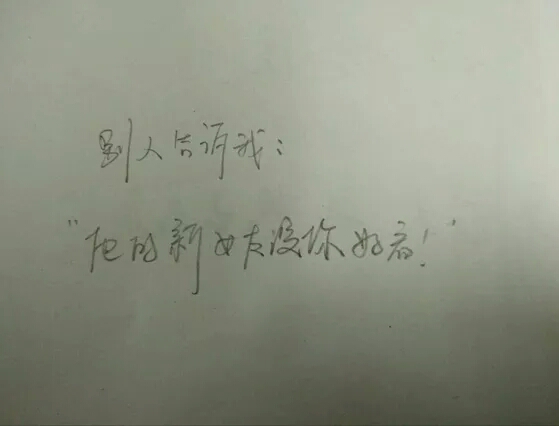 别人告诉我：
“他的新女友没你好看！”